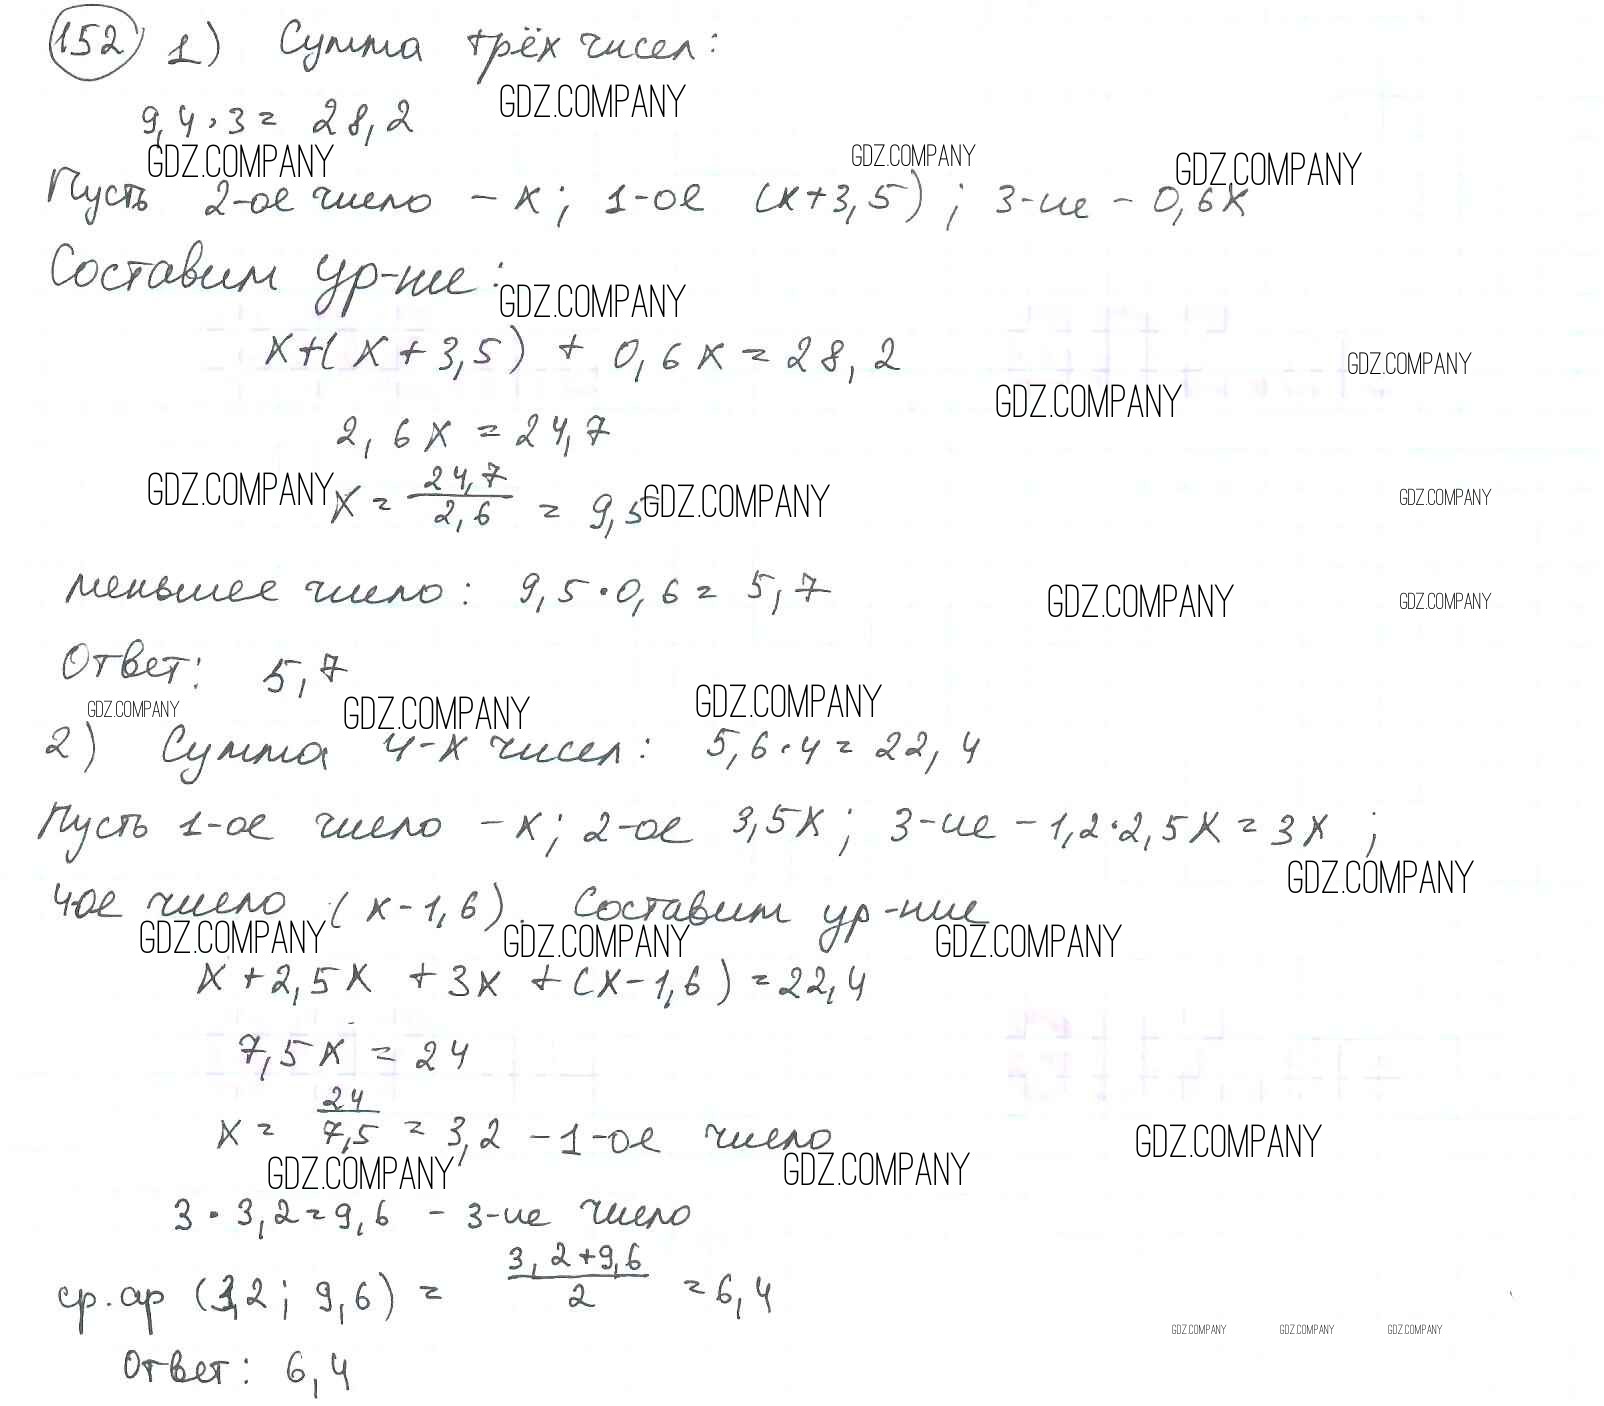 152 1) Сумма трёх чисел:
GDZ.COMPANY
9,4·3= 28,2
GDZ.COMPANY GDZ.COMPANY GDZ.COMPANY
Пусть 2-ое число – x; 1-ое (x+3,5); 3-ие – 0,6x
Составим ур-ние:
GDZ.COMPANY
x+(x+3,5) + 0,6x = 28,2
GDZ.COMPANY
GDZ.COMPANY
2,6x = 24,7
GDZ.COMPANY x = 24,7/2,6 = 9,5 GDZ.COMPANY GDZ.COMPANY
меньшее число: 9,5·0,6= 5,7 GDZ.COMPANY GDZ.COMPANY
Ответ: 5,7
GDZ.COMPANY GDZ.COMPANY GDZ.COMPANY
2) Сумма 4-х чисел: 5,6·4= 22,4
Пусть 1-ое число – x; 2-ое 3,5x; 3-ие – 1,2·2,5x = 3x;
GDZ.COMPANY
4ое число (x-1,6). Составим ур-ние
GDZ.COMPANY GDZ.COMPANY GDZ.COMPANY
x + 2,5x + 3x + (x-1,6) = 22,4
7,5x = 24
x = 24/7,5 = 3,2 – 1-ое число
GDZ.COMPANY
GDZ.COMPANY GDZ.COMPANY
3 · 3,2=9,6 – 3-ие число
ср. ар (3,2; 9,6) = 3,2+9,6/2 = 6,4
GDZ.COMPANY GDZ.COMPANY GDZ.COMPANY
Ответ: 6,4